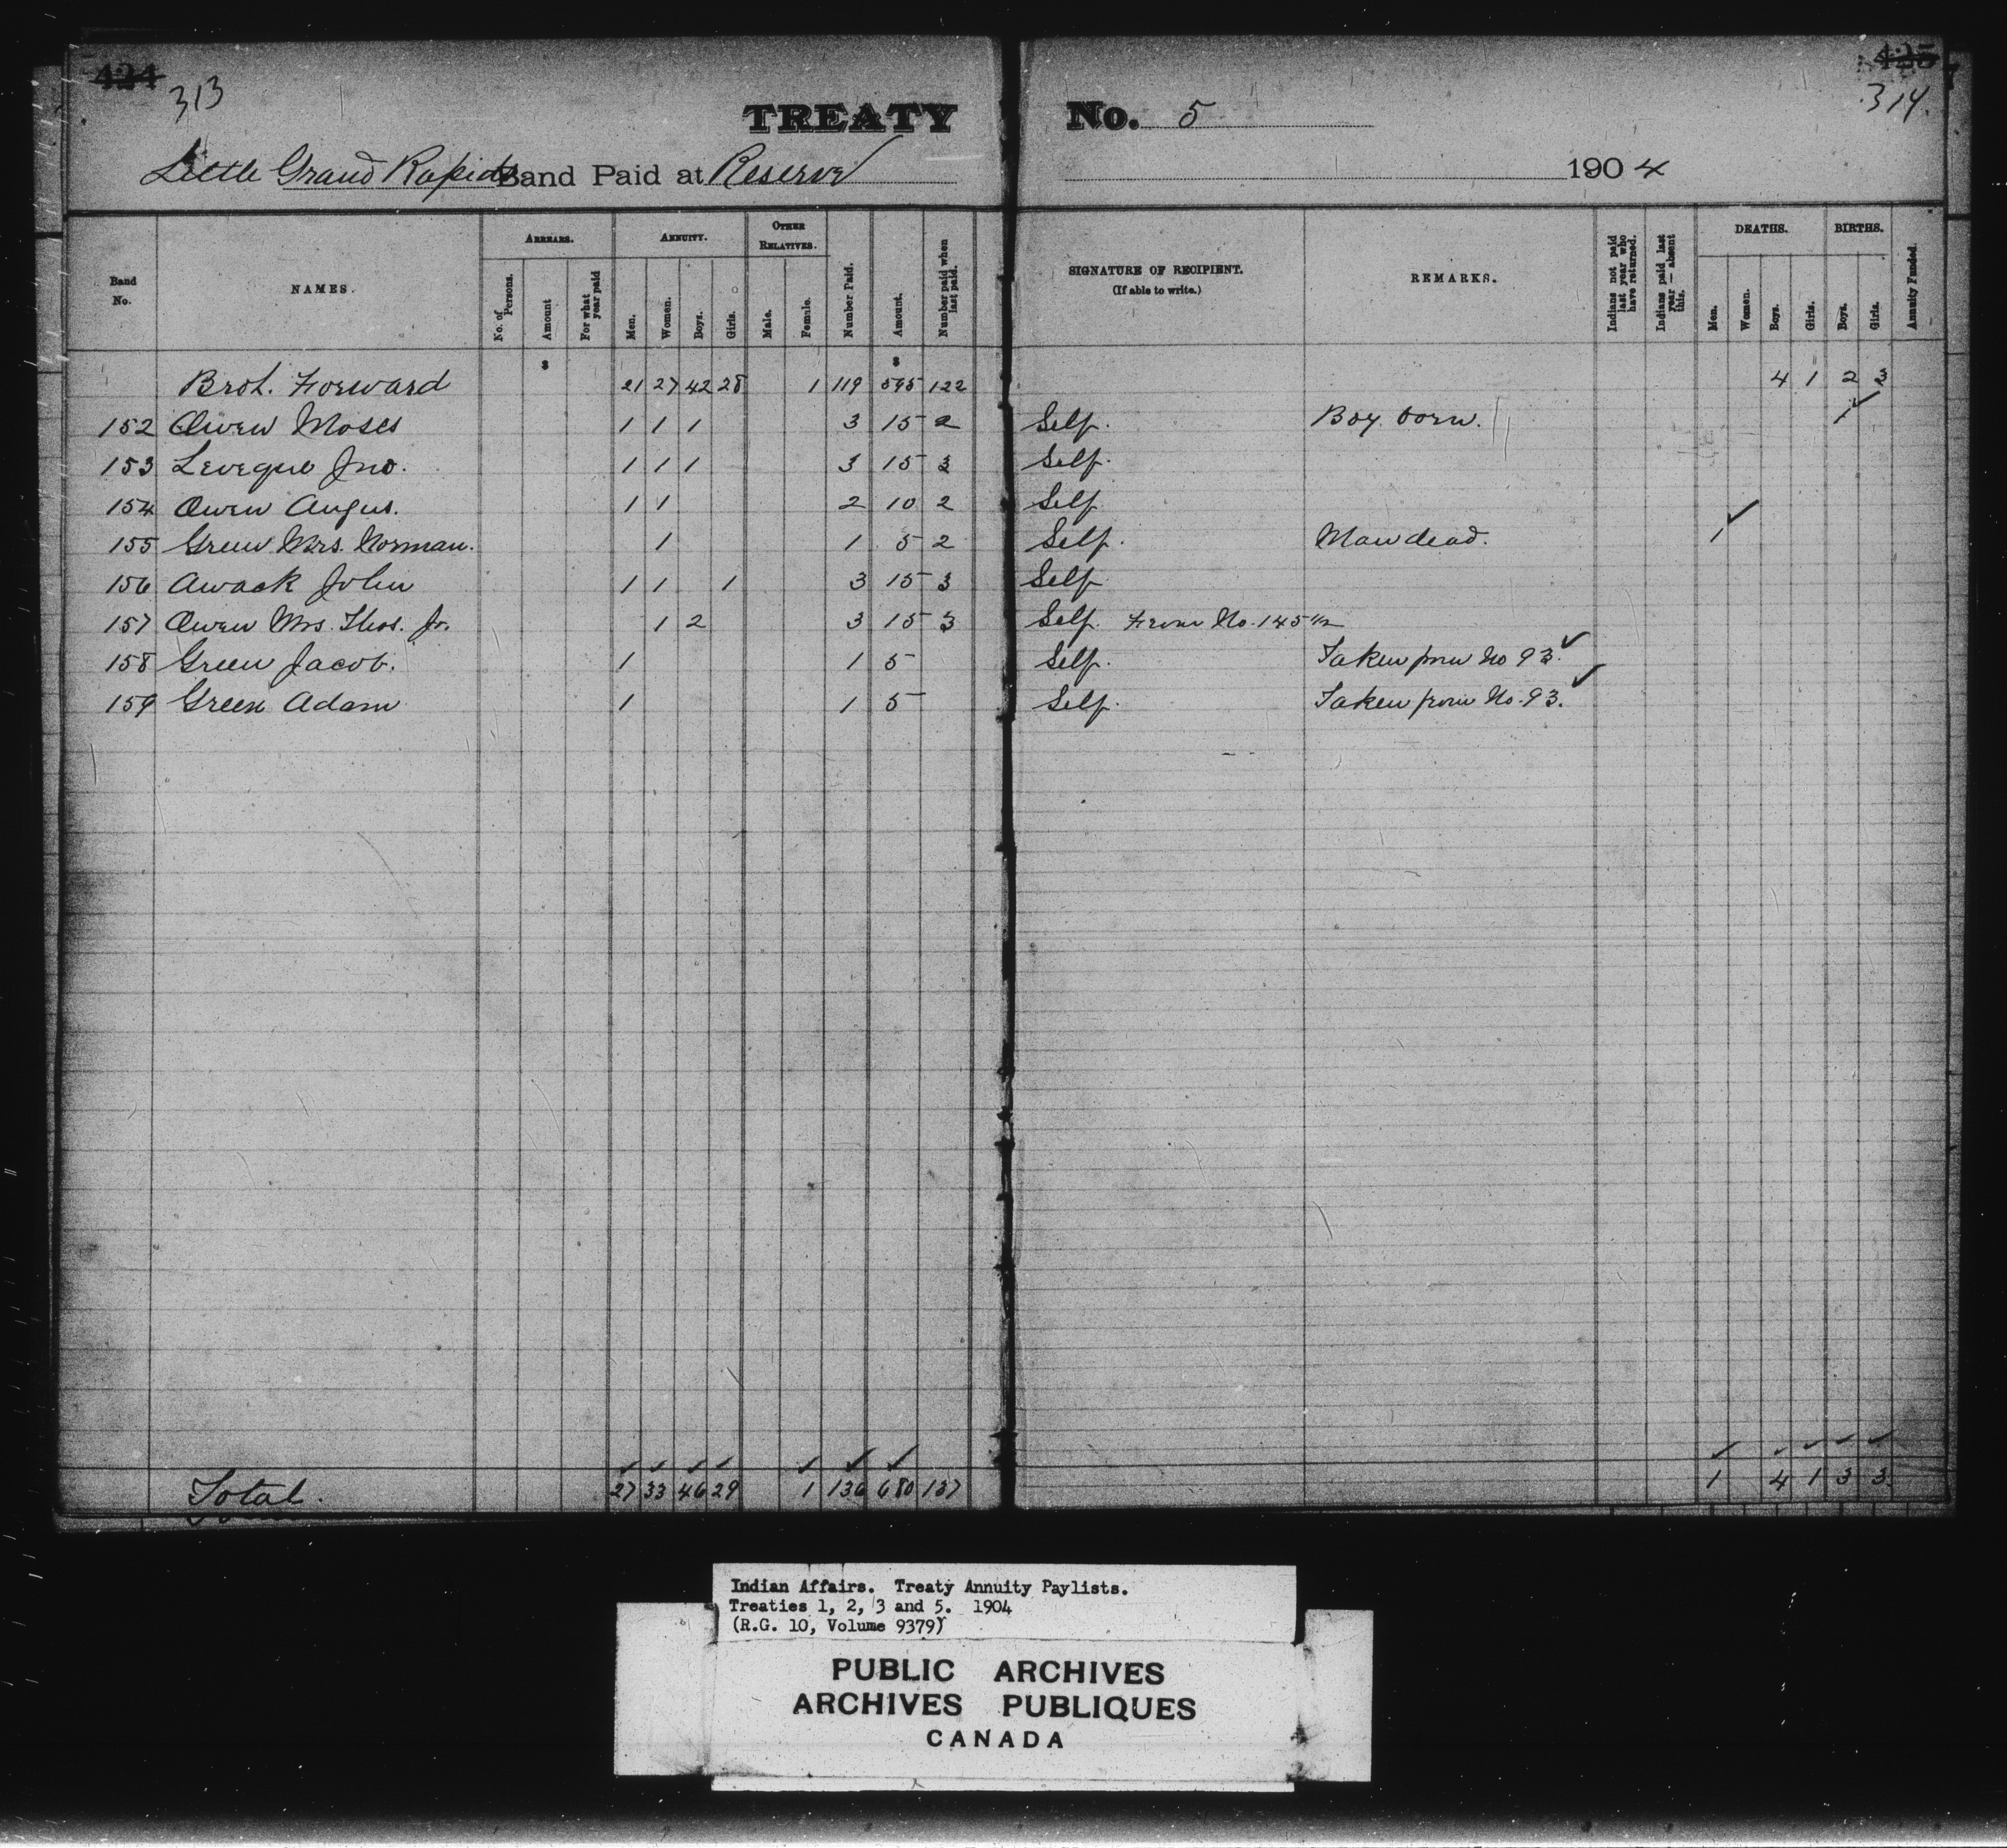 424 425
313 314.
TREATY No. 5
Little Grand Rapids Band Paid at Reserve 1904
Band No. NAMES. ARREARS. No. of Persons. Amount For what year paid ANNUITY. Men. Women. Boys. Girls. OTHER RELATIVES. Male. Female. Number Paid. Amount. Number paid when last paid. SIGNATURE OF RECIPIENT. (If able to write.) REMARKS. Indians not paid last year who have returned. Indians paid last year — absent this. DEATHS. Men. Women. Boys. Girls. BIRTHS. Boys. Girls. Annuity Funded.
$ $
Brot. Forward 21 27 42 28 1 119 595 122 4 1 2 3
152 Owen Moses 1 1 1 3 15 2 Self. Boy born. 1 ✓
153 Leveque Jno. 1 1 1 3 15 3 Self.
154 Owen Angus. 1 1 2 10 2 Self
155 Green Mrs. Norman. 1 1 5 2 Self. Man dead. 1 ✓
156 Awack John 1 1 1 3 15 3 Self
157 Owen Mrs. Thos. Jr. 1 2 3 15 3 Self. From No. 145½
158 Green Jacob. 1 1 5 Self. Taken from No 93. ✓
159 Green Adam 1 1 5 Self. Taken from No. 93. ✓
✓ ✓ ✓ ✓ ✓ ✓ ✓ ✓ ✓ ✓ ✓ ✓
Total. 27 33 46 29 1 136 680 137 1 4 1 3 3
Indian Affairs. Treaty Annuity Paylists.
Treaties 1, 2, 3 and 5. 1904
(R.G. 10, Volume 9379)
PUBLIC ARCHIVES
ARCHIVES PUBLIQUES
CANADA